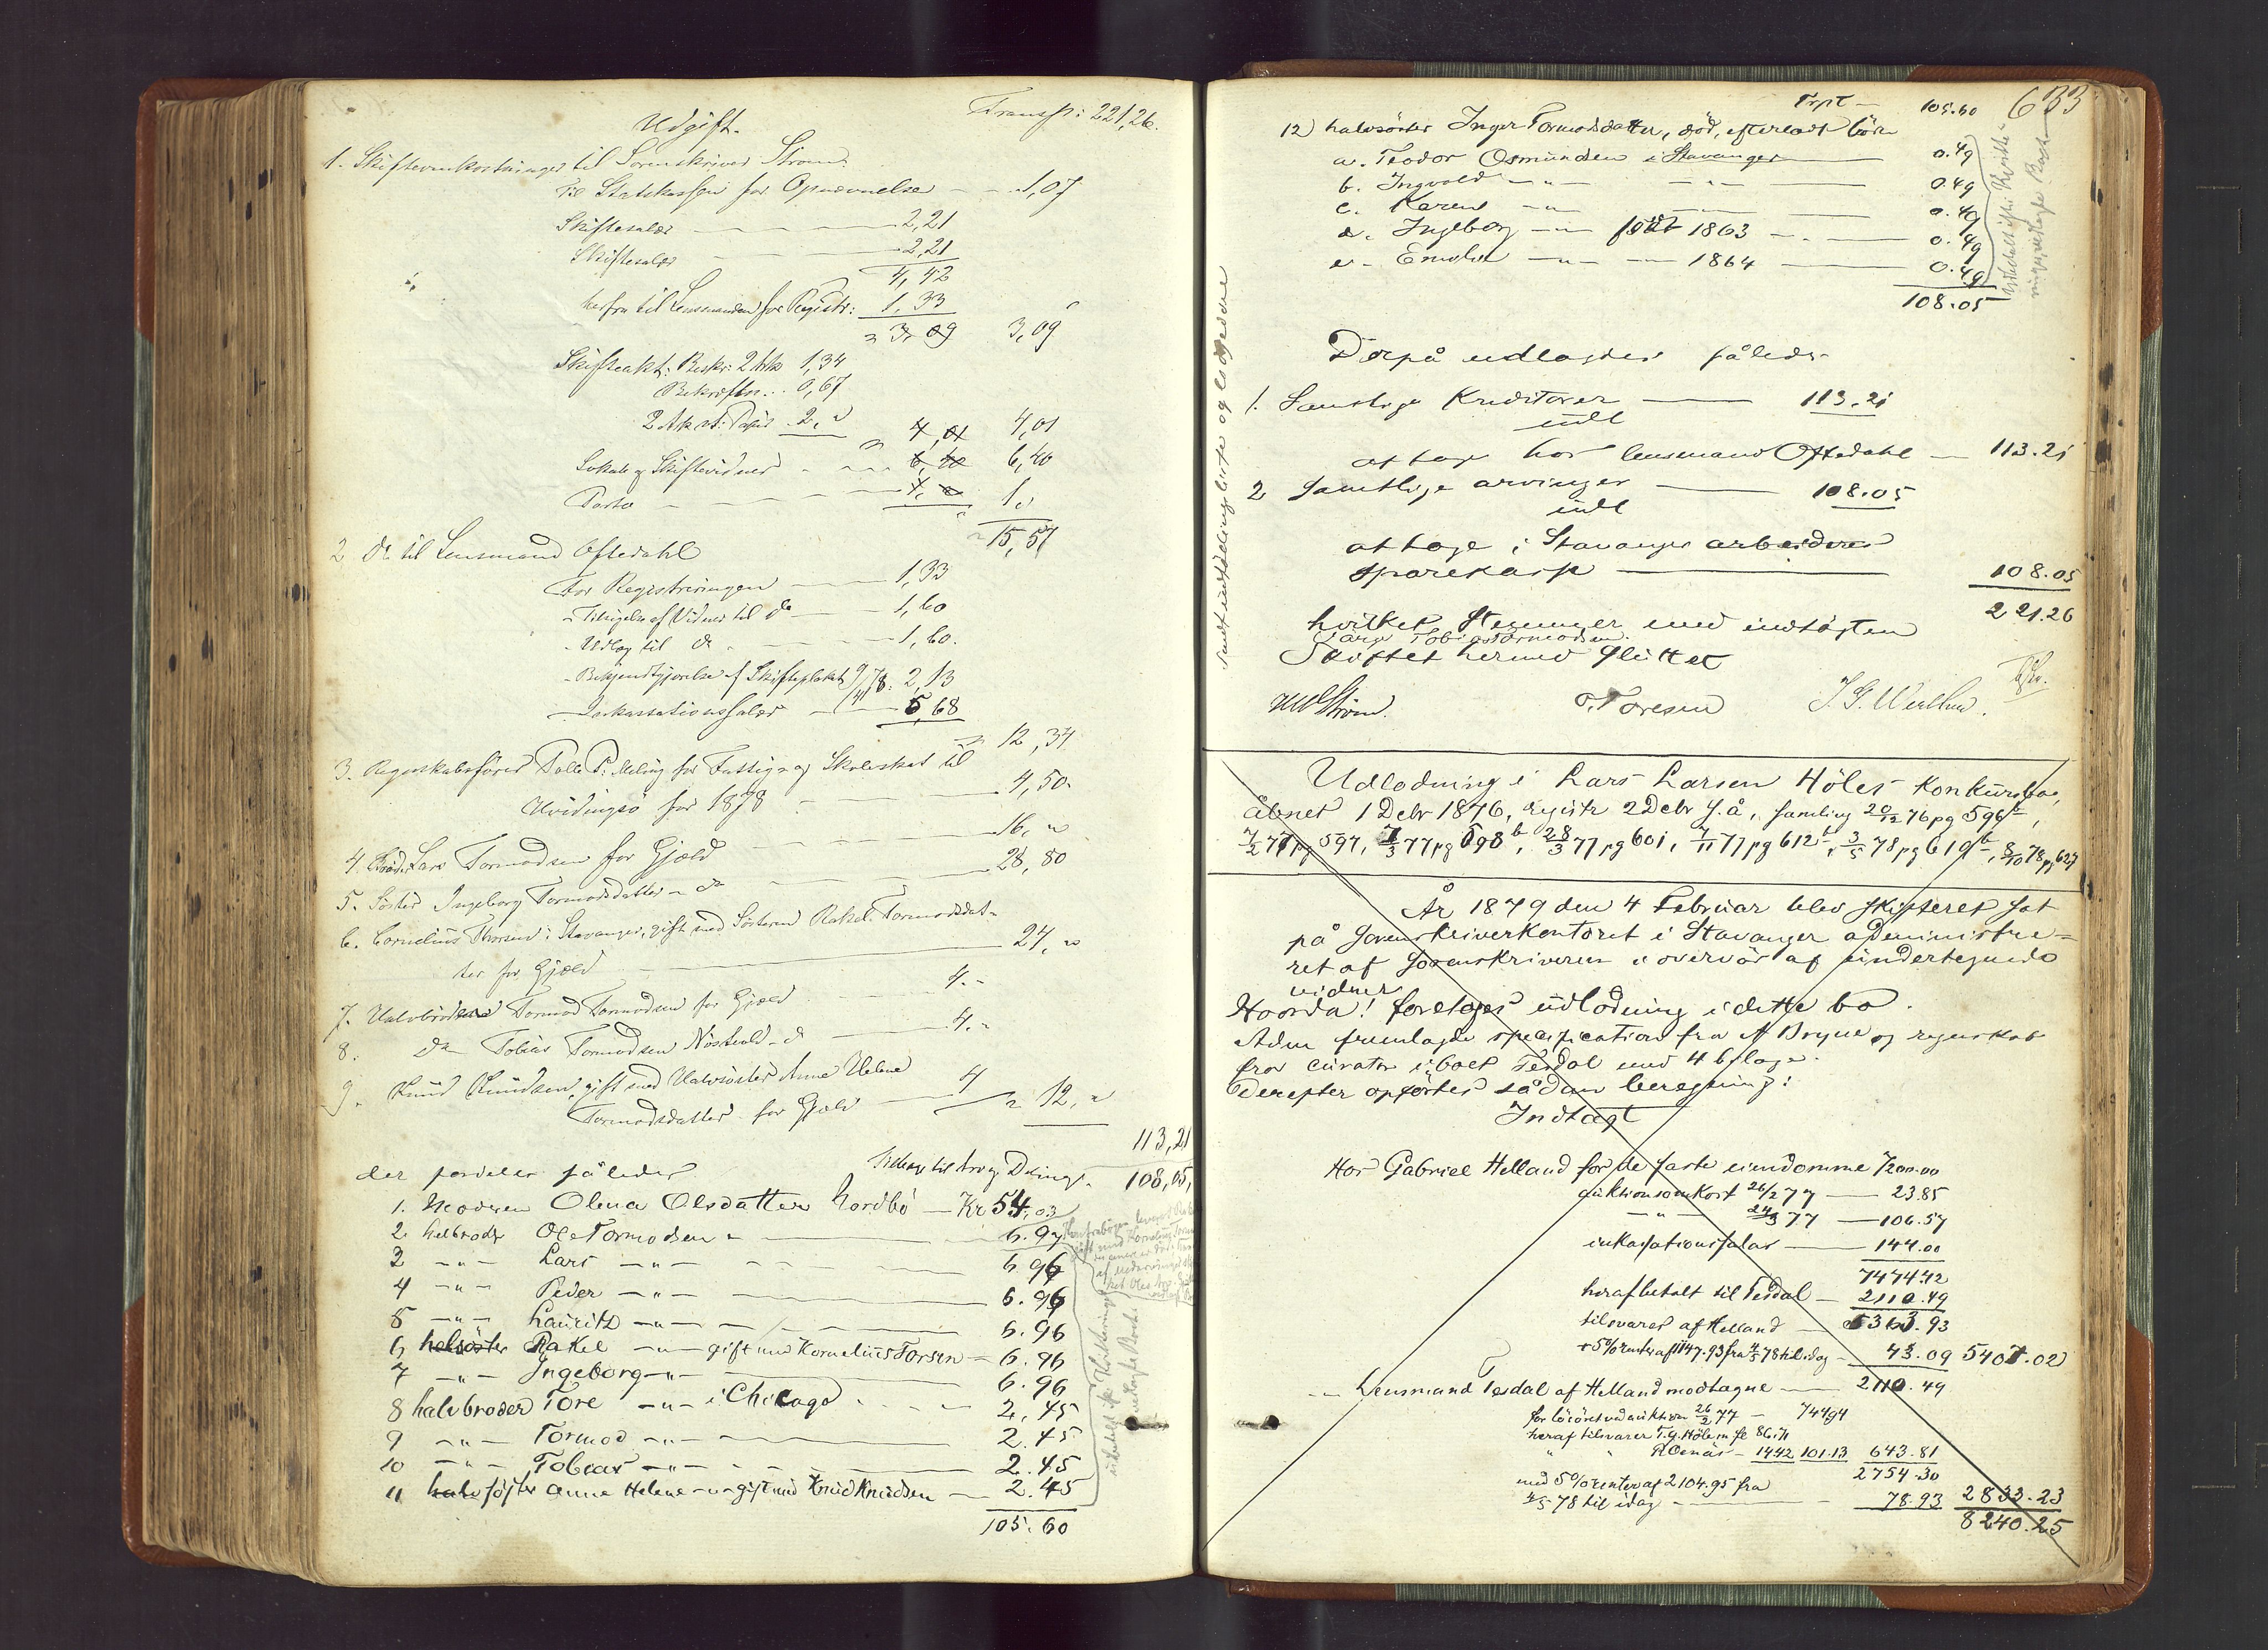 Transp: 221,26.
Udgift.
1. Skifteomkostninger til Sorenskriver Strøm:
Til Statskassen for Opnævnelse — 1,07
Skiftesalær — 2,21
Skiftesalær — 2,21
4,42
herfra til Lensmanden for Registr: 1,33
3,09 3,09
Skifteakt: Beskr: 2 Ark 1,34
Bekræfteln. 0,67
2 Ark st: Papir 2,"
4,01 4,01
Lokale og Skiftevidner 6,40 6,40
Porto — 1,"
15,57
2 do til Lensmand Oftedahl
For Registreringen — 1,33
- Tilsigelse af Vidner til do — 1,60
- Udlæg til do — 1,60.
- Bekjendtgjørelse af Skifteplakat 9/78: 2,13
- Inkassationssalær — 5,68
12,34
3. Regnskabsfører Tolle P: Meling for Fattig- og Skoleskat til
Hvidingsö for 1878 — 4,50.
4. Broder Lars Tormodsen for Gjæld — 16,"
5. Söster Ingeborg Tormodsdatter - do — 28,80
6. Cornelius Thorsen i Stavanger, gift med Sösteren Rakel Tormodsdat-
ter for Gjæld — 27,"
7. Halvbroder Tormod Tormodsen for Gjæld — 4.-
8. do Tobias Tormodsen Nöstvold - do — 4.-
9. Knud Knudsen, gift med Halvsöster Anne Helene
Tormodsdatter for Gjæld — 4 12,"
113,21
Tilbage til Arv og Deling 108,05,
der fordeles således
1. Moderen Olena Olsdatter Nordbö — Kr 54,03
2. helbroder Ole Tormodsen — 6.97
3 —"— Lars —"— 6.96
4 —"— Peder —"— 6.96
5 —"— Lauritz —"— 6.96
6 helsöster Rakel —"— gift med Kornelius Torsen — 6.96
7 —"— Ingeborg —"— 6.96
8 halvbroder Tore —"— i Chicago — 2.45
9 —"— Tormod —"— 2.45
10 —"— Tobias —"— 2.45
11 halvsöster Anne Helene —"— gift med Knud Knudsen — 2.45
105.60
633
Trpt — 105.60
12) halvsöster Inger Tormodsdatter, död, efterladt börn
a. Teodor Osmundsen i Stavanger — 0.49
b. Ingvald —"— —"— 0.49
c. Karen —"— —"— 0.49
d. Ingeborg —"— född 1863 — 0.49
e. —"— —"— 1864 — 0.49
108.05
Derpå udlagdes således
1. Samtlige Kreditorer — 113.21
udl
at tage hos lensmand Oftedahl — 113.21
2 Samtlige arvinger — 108.05
udl
at tage i Stavanger arbeideres
sparekasse — 108.05
hvilket stemmer med indtægten 221.26
Tobias Tormodsen
Skiftet hermed sluttet
MW Ström. T. Toresen
Udlodning i Lars Larsen Höles Konkursbo,
åbnet 1 Decbr 1876, registr 2 Decbr s.å., samling 20/12 76 pg 596b,
7/2 77 pg 597, 7/3 77 pg 598b, 28/3 77 pg 601, 7/11 77 pg 612b, 3/5 78 pg 619b, 8/10 78 pg 627
År 1879 den 4 Februar blev skifteret sat
på sorenskriverkontoret i Stavanger administre-
ret af sorenskriveren i overvær af undertegnede
vidner
Hvorda! foretoges udlodning i dette bo.
Adm fremlagde specification fra Bryne og regnskab
fra curator i boet Tesdal med 4 bilage.
Derefter opförtes sådan beregning:
Indtægt
Hos Gabriel Helland for de faste eiendomme 7200.00
auktionsomkost 26/2 77 — 23.85
—"— 24/3 77 — 106.57
inkassationssalær — 144.00
7474.42
heraf betalt til Tesdal — 2110.49
tilsvares af Helland — 5363.93
+ 5% renter af 1147.93 fra 4/5 78 til idag — 43.09 5407.02
—"— Lensmand Tesdal af Helland modtagne — 2110.49
for lösöret ved auktion 26/2 77 — 744.94
heraf tilsvarer T. G. Höle
1442 101.13 643.81
2754.30
med 5% renter af 2104.95 fra
4/5 78 til idag — 78.93 2833.23
8240.25